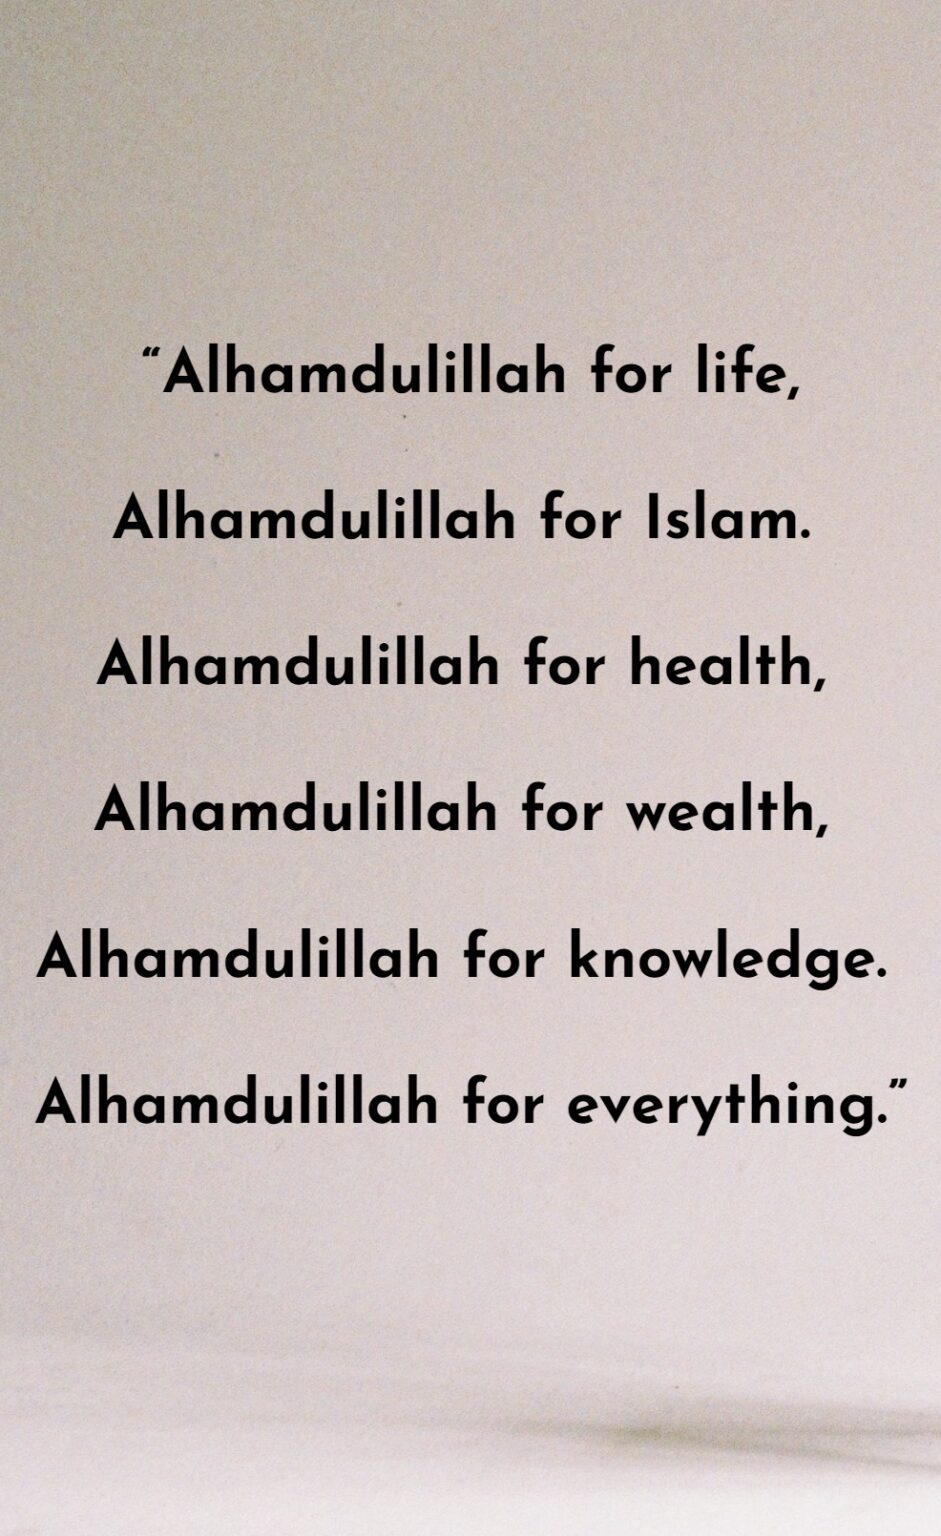 “Alhamdulillah for life,
Alhamdulillah for Islam.
Alhamdulillah for health,
Alhamdulillah for wealth,
Alhamdulillah for knowledge.
Alhamdulillah for everything.”